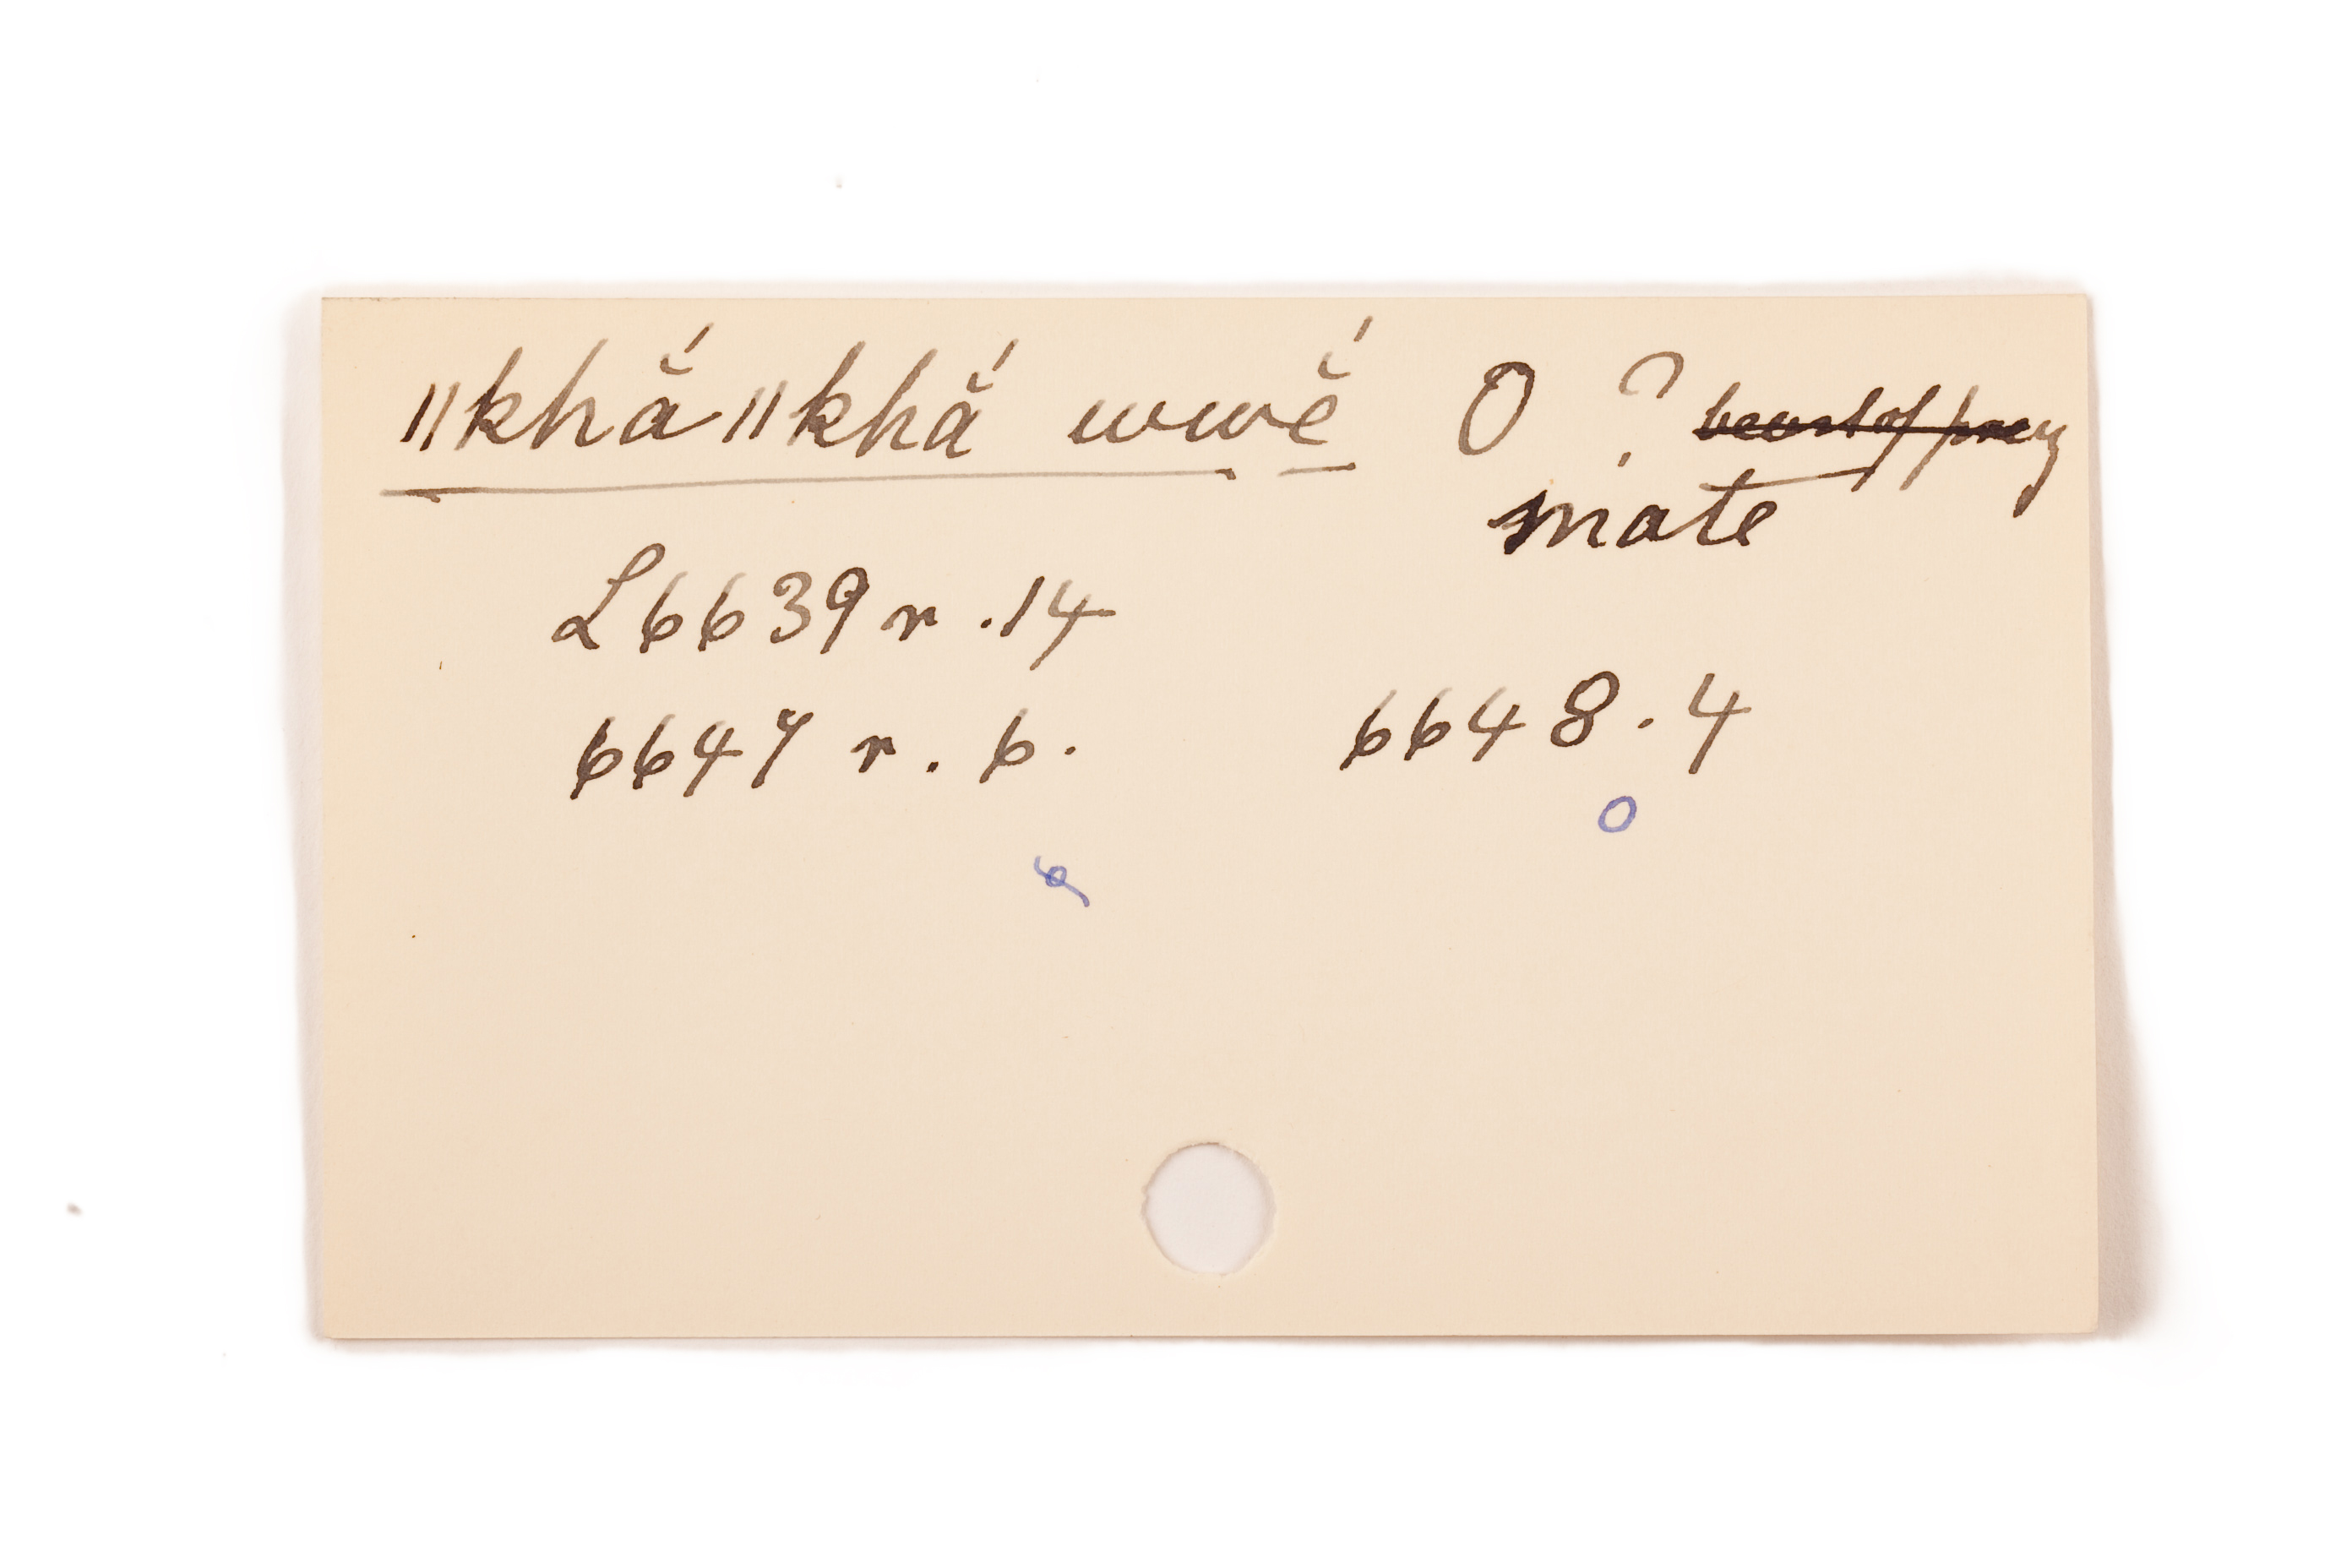 ǁkhắǁkhắ wwĕ́ O ? beast of prey
mate
L6639 r .14
6647 r . 6. 6648 . 4